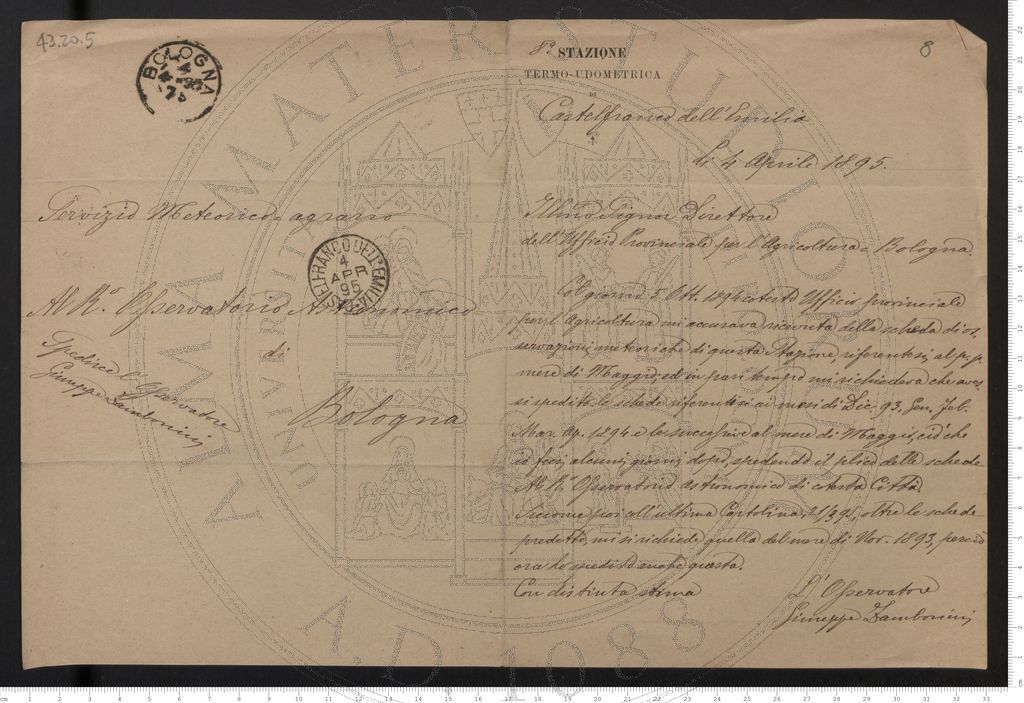 43.20.5
BOLOGNA
4
Servizio Meteorico-agrario
CASTELFRANCO DELL'EMILIA
4
APR
95
Al R.º Osservatorio Astronomico
di
Bologna
Spedisce l'Osservatore
Giuseppe Zambonini
8
8ª STAZIONE
TERMO-UDOMETRICA
DI
Castelfranco dell'Emilia
li 4 Aprile 1895.
Illmo Signor Direttore
dell'Ufficio Provinciale per l'Agricoltura = Bologna.
Col giorno 5 Ott. 1894 cotesto Ufficio provinciale
per l'Agricoltura mi accusava ricevuta della scheda di os
servazioni meteoriche di questa Stazione, riferentesi al p.p.
mese di Maggio, ed in pari tempo mi richiedeva che aves
si spedite le schede riferentesi ai mesi di Dic. 93, Gen. Feb.
Mar. Ap. 1894 e le successive al mese di Maggio, ciò che
io feci alcuni giorni dopo, spedendo il plico delle schede
Al R.º Osservatorio astronomico di cotesta Città.
Siccome poi all'ultima Cartolina, 21/3 95, oltre le schede
predette, mi si richiede quella del mese di Nov. 1893, perciò
ora ho spedito anche questa.
Con distinta stima
L'Osservatore
Giuseppe Zambonini
ALMA MATER STUDIORUM
A.D. 1088